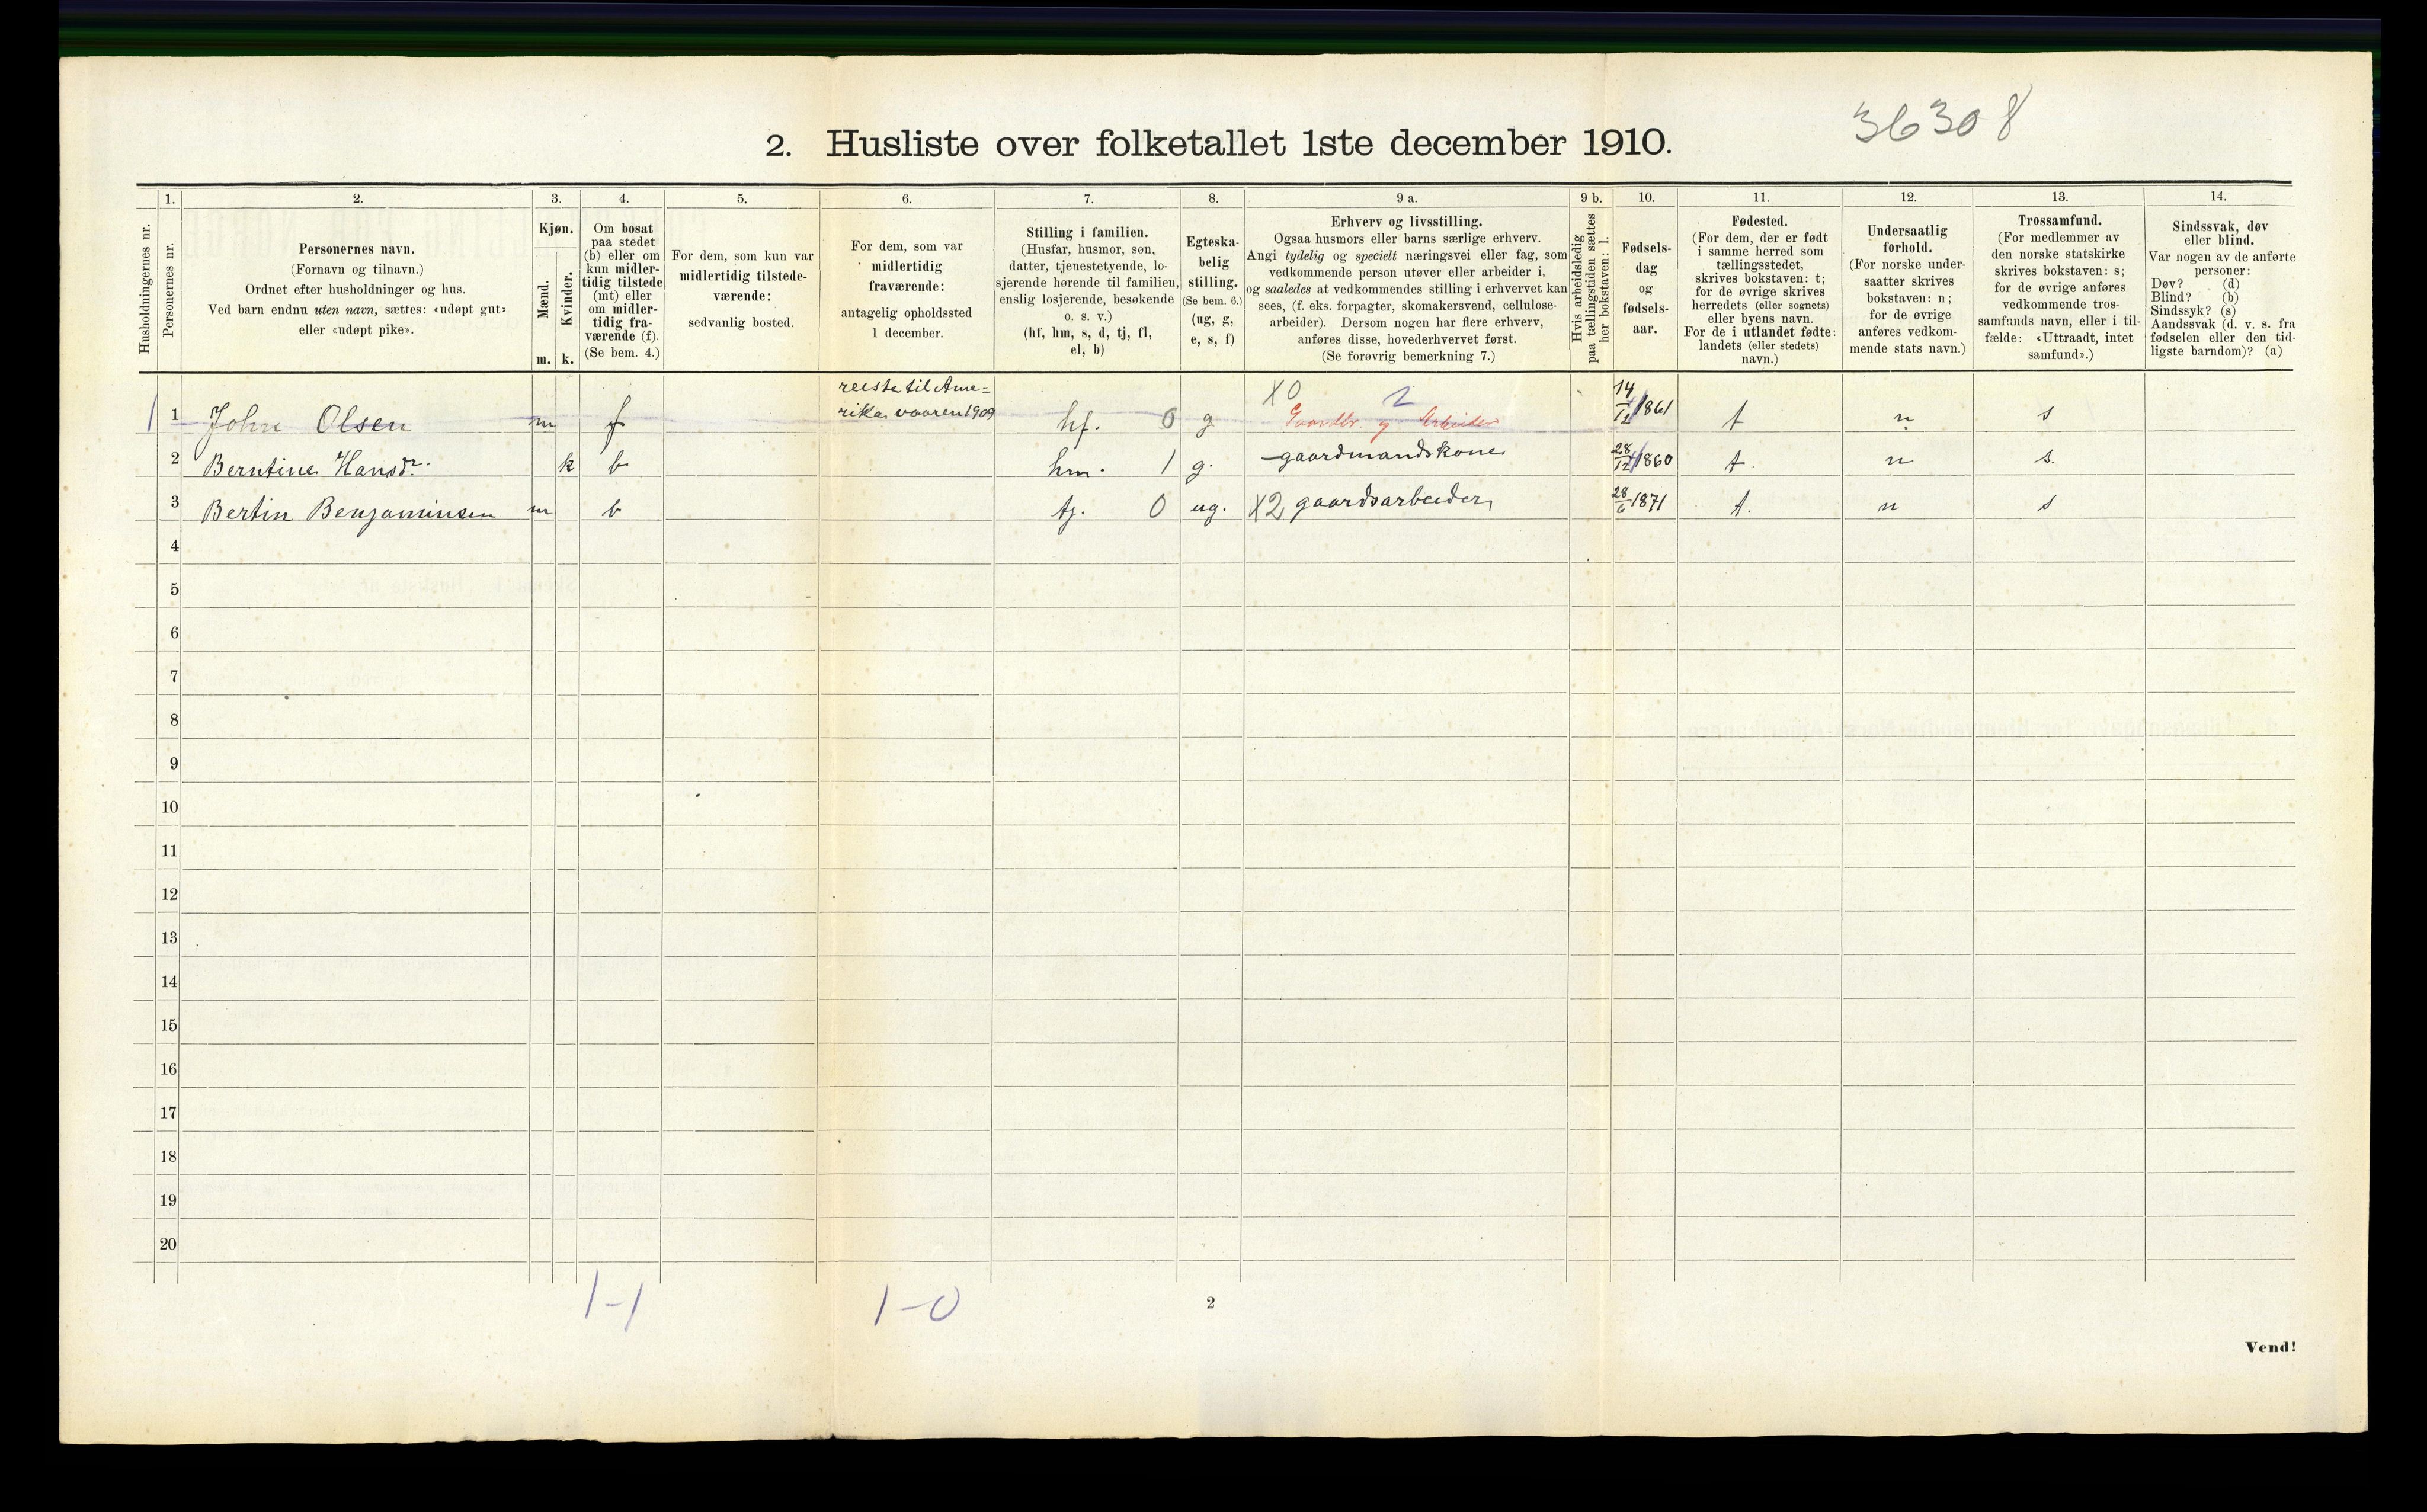 36308
2. Husliste over folketallet 1ste december 1910.
Husholdningernes nr.
1.
Personernes nr.
2.
Personernes navn.
(Fornavn og tilnavn.)
Ordnet efter husholdninger og hus.
Ved barn endnu uten navn, sættes: «udøpt gut»
eller «udøpt pike».
3.
Kjøn.
Mænd.
Kvinder.
m. k.
4.
Om bosat
paa stedet
(b) eller om
kun midler-
tidig tilstede
(mt) eller
om midler-
tidig fra-
værende (f).
(Se bem. 4.)
5.
For dem, som kun var
midlertidig tilstede-
værende:
sedvanlig bosted.
6.
For dem, som var
midlertidig
fraværende:
antagelig opholdssted
1 december.
7.
Stilling i familien.
(Husfar, husmor, søn,
datter, tjenestetyende, lo-
sjerende hørende til familien,
enslig losjerende, besøkende
o. s. v.)
(hf, hm, s, d, tj, fl,
el, b)
8.
Egteska-
belig
stilling.
(Se bem. 6.)
(ug, g,
e, s, f)
9 a.
Erhverv og livsstilling.
Ogsaa husmors eller barns særlige erhverv.
Angi tydelig og specielt næringsvei eller fag, som
vedkommende person utøver eller arbeider i,
og saaledes at vedkommendes stilling i erhvervet kan
sees, (f. eks. forpagter, skomakersvend, cellulose-
arbeider). Dersom nogen har flere erhverv,
anføres disse, hovederhvervet først.
(Se forøvrig bemerkning 7.)
9 b.
Hvis arbeidsledig
paa tællingstiden sættes
her bokstaven: l.
10.
Fødsels-
dag
og
fødsels-
aar.
11.
Fødested.
(For dem, der er født
i samme herred som
tællingsstedet,
skrives bokstaven: t;
for de øvrige skrives
herredets (eller sognets)
eller byens navn.
For de i utlandet fødte:
landets (eller stedets)
navn.)
12.
Undersaatlig
forhold.
(For norske under-
saatter skrives
bokstaven: n;
for de øvrige
anføres vedkom-
mende stats navn.)
13.
Trossamfund.
(For medlemmer av
den norske statskirke
skrives bokstaven: s;
for de øvrige anføres
vedkommende tros-
samfunds navn, eller i til-
fælde: «Uttraadt, intet
samfund».)
14.
Sindssvak, døv
eller blind.
Var nogen av de anførte
personer:
Døv? (d)
Blind? (b)
Sindssyk? (s)
Aandssvak (d. v. s. fra
fødselen eller den tid-
ligste barndom)? (a)
1 1 John Olsen m f reiste til Ame= rika vaaren 1909 hf. 0 g X0 2 Gaardbr. og Arbeider 14/12 1861 t n s
2 Berntine Hansdr. k b hm. 1 g. gaardmandskone 28/12 1860 t. n s.
3 Bertin Benjaminsen m b tj. 0 ug. X2 gaardsarbeider 28/6 1871 t. n s
4
5
6
7
8
9
10
11
12
13
14
15
16
17
18
19
20
1-1 1-0
2
Vend!